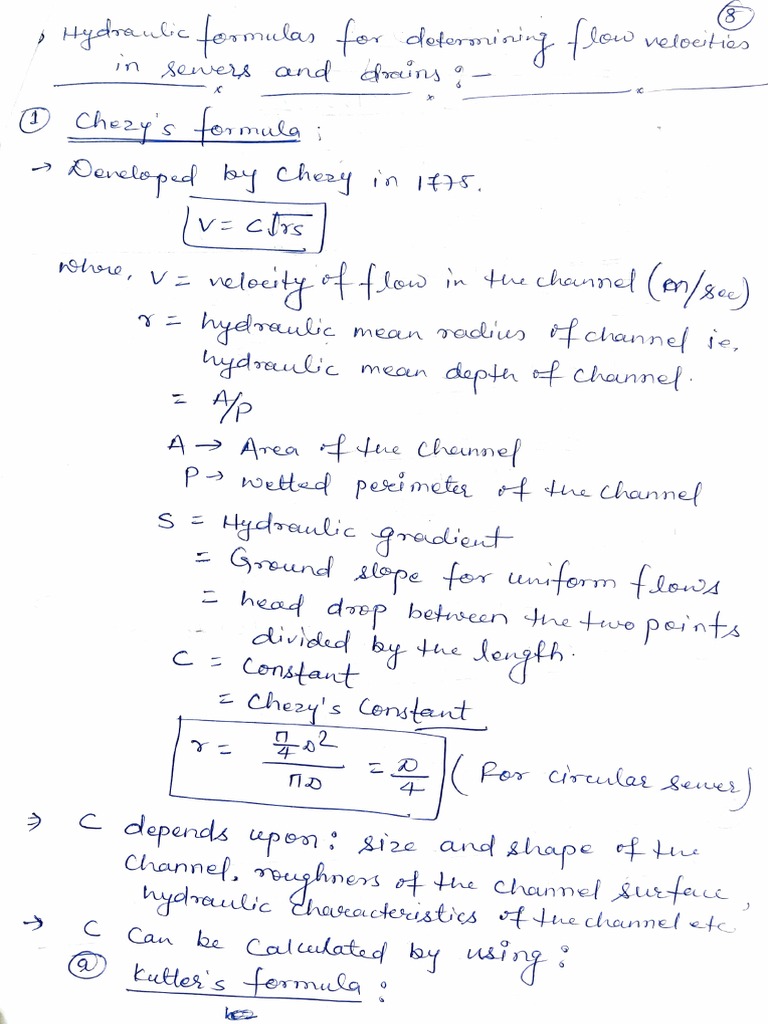 8
Hydraulic formulas for determining flow velocities
in sewers and drains :-
① Chezy's formula :
→ Developed by Chezy in 1775.
V = C√rs
where, V = velocity of flow in the channel (m/sec)
r = hydraulic mean radius of channel ie,
hydraulic mean depth of channel.
= A/P
A → Area of the channel
P → wetted perimeter of the channel
S = Hydraulic gradient
= Ground slope for uniform flows
= head drop between the two points
divided by the length.
C = Constant
= Chezy's Constant
r = π/4 D² / πD = D/4 (For circular sewer)
⇒ C depends upon : size and shape of the
channel, roughness of the channel surface,
hydraulic characteristics of the channel etc
→ C can be calculated by using :
ⓐ Kutter's formula :